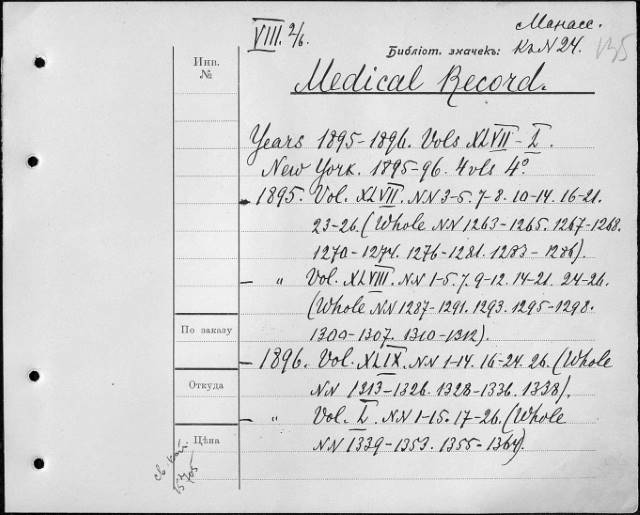 VIII. 2/6.
Манасс.
Библіот. значекъ: Къ N 24.
135
Инв.
№
Medical Record.
Years 1895-1896. Vols XLVII - L.
New York. 1895-96. 4 vls 4º
- 1895. Vol. XLVII. NN 3-5. 7-8. 10-14. 16-21.
23-26. (Whole NN 1263-1265. 1267-1268.
1270-1274. 1276-1281. 1283-1286).
- " Vol. XLVIII. NN 1-5. 7. 9-12. 14-21. 24-26.
(Whole NN 1287-1291. 1293. 1295-1298.
1300-1307. 1310-1312).
По заказу
- 1896. Vol. XLIX. NN 1-14. 16-24. 26. (Whole
Откуда
NN 1313-1326. 1328-1336. 1338).
- " Vol. L. NN 1-15. 17-26. (Whole
Цѣна
NN 1339-1353. 1355-1364).